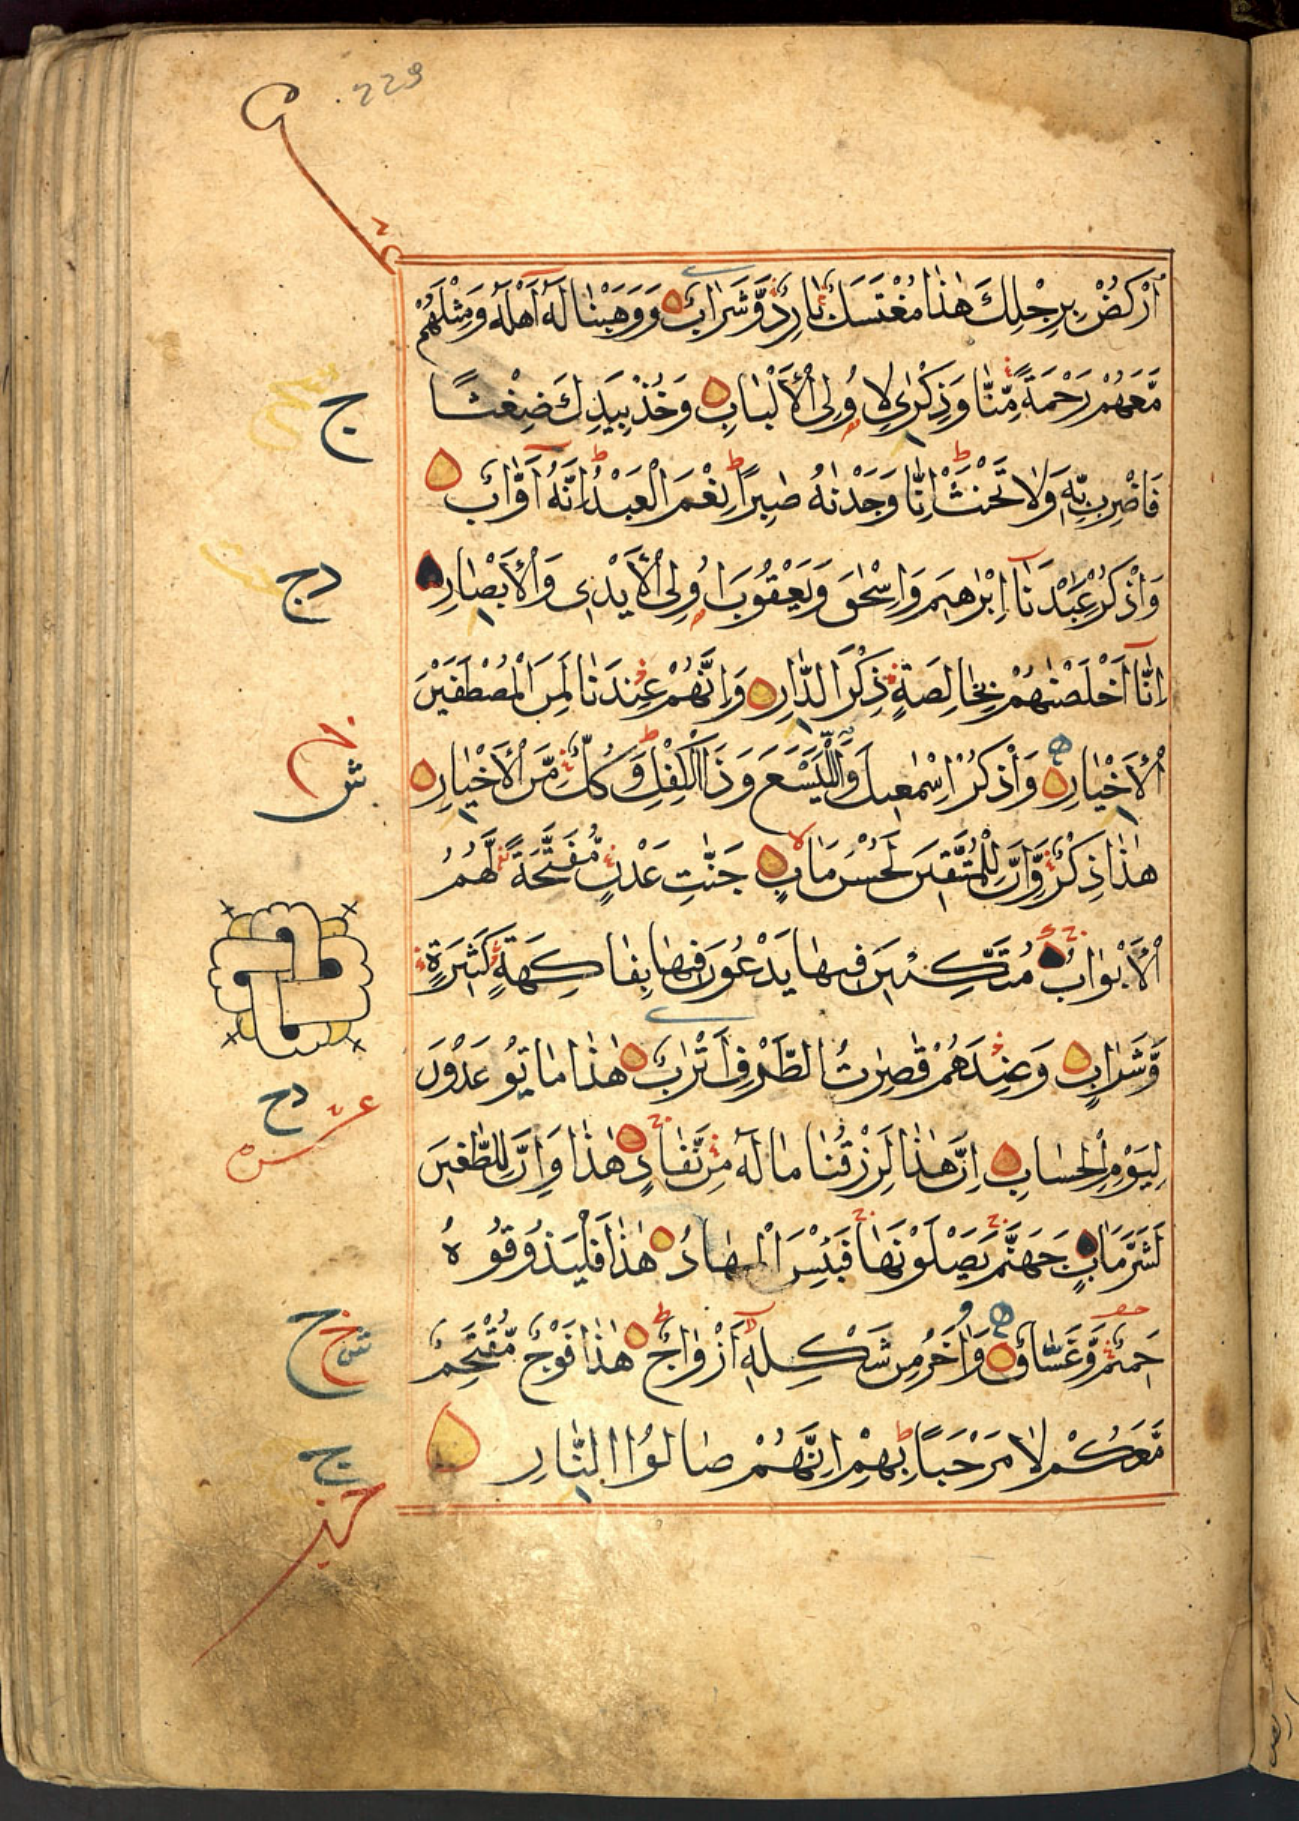 229
اُرْكُضْ بِرِجْلِكَ هٰذَا مُغْتَسَلٌ بَارِدٌ وَّشَرَابٌ وَوَهَبْنَا لَهٗٓ اَهْلَهٗ وَمِثْلَهُمْ
مَّعَهُمْ رَحْمَةً مِّنَّا وَذِكْرٰى لِاُولِى الْاَلْبَابِ وَخُذْ بِيَدِكَ ضِغْثًا
فَاضْرِبْ بِّهٖ وَلَا تَحْنَثْ اِنَّا وَجَدْنٰهُ صَابِرًا نِعْمَ الْعَبْدُ اِنَّهٗٓ اَوَّابٌ
وَاذْكُرْ عِبٰدَنَآ اِبْرٰهِيْمَ وَاِسْحٰقَ وَيَعْقُوْبَ اُولِى الْاَيْدِىْ وَالْاَبْصَارِ
اِنَّآ اَخْلَصْنٰهُمْ بِخَالِصَةٍ ذِكْرَى الدَّارِ وَاِنَّهُمْ عِنْدَنَا لَمِنَ الْمُصْطَفَيْنَ
الْاَخْيَارِ وَاذْكُرْ اِسْمٰعِيْلَ وَالْيَسَعَ وَذَا الْكِفْلِ وَكُلٌّ مِّنَ الْاَخْيَارِ
هٰذَا ذِكْرٌ وَّاِنَّ لِلْمُتَّقِيْنَ لَحُسْنَ مَاٰبٍ جَنّٰتِ عَدْنٍ مُّفَتَّحَةً لَّهُمُ
الْاَبْوَابُ مُتَّكِـِٕيْنَ فِيْهَا يَدْعُوْنَ فِيْهَا بِفَاكِهَةٍ كَثِيْرَةٍ
وَّشَرَابٍ وَعِنْدَهُمْ قٰصِرٰتُ الطَّرْفِ اَتْرَابٌ هٰذَا مَا تُوْعَدُوْنَ
لِيَوْمِ الْحِسَابِ اِنَّ هٰذَا لَرِزْقُنَا مَا لَهٗ مِنْ نَّفَادٍ هٰذَا وَاِنَّ لِلطّٰغِيْنَ
لَشَرَّ مَاٰبٍ جَهَنَّمَ يَصْلَوْنَهَا فَبِئْسَ الْمِهَادُ هٰذَا فَلْيَذُوْقُوْهُ
حَمِيْمٌ وَّغَسَّاقٌ وَاٰخَرُ مِنْ شَكْلِهٖٓ اَزْوَاجٌ هٰذَا فَوْجٌ مُّقْتَحِمٌ
مَّعَكُمْ لَا مَرْحَبًا بِهِمْ اِنَّهُمْ صَالُوا النَّارِ
ج
دج
ش
دح
عشره
ج